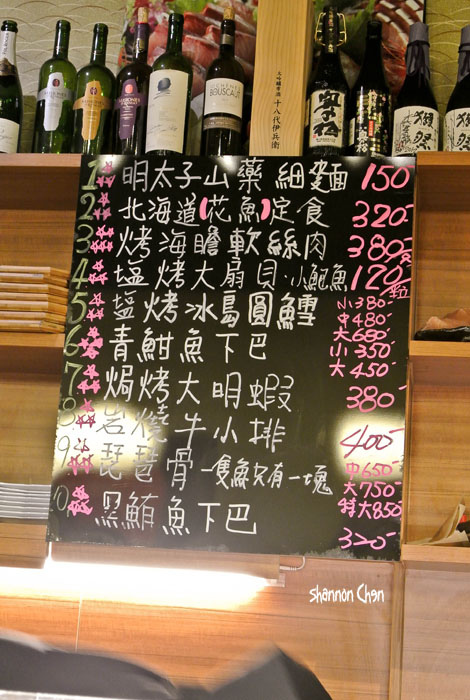 1 明太子山藥細麵 150
2 北海道(花魚)定食 320-
3 烤海瞻軟絲肉 380-
4 塩烤大扇貝.小鮑魚 120-粒
5 塩烤冰島圓鱈 小380- 中480- 大680-
6 青魽魚下巴 小350- 大450-
7 焗烤大明蝦 380-
8 岩燒牛小排 400-
9 琵琶骨 一隻魚只有一塊 中650- 大750- 特大850-
10 黑鮪魚下巴 320-
大吟醸本酒 十八代伊兵衛
獺祭
獺祭
Shannon Chen